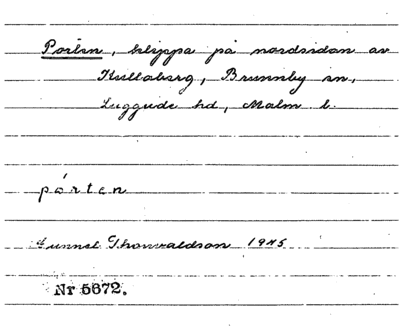 Porten, klippa på nordsidan av
Kullaberg, Brunnby sn,
Luggude hd, Malm l.
pórten
Gunnel Thorvaldson 1945
Nr 5672.